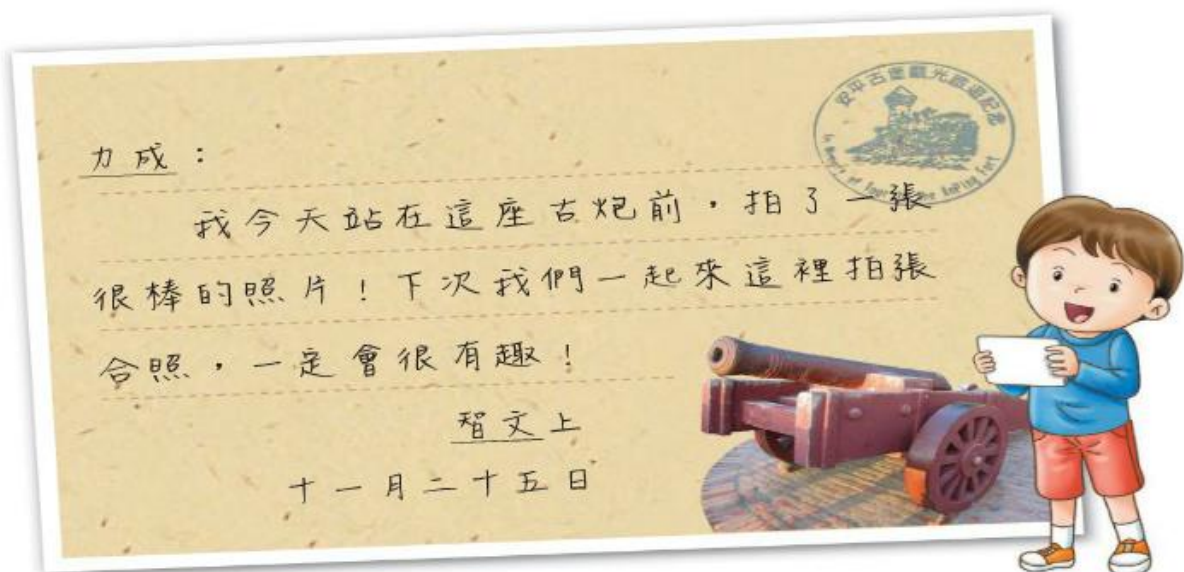 安平古堡觀光旅遊紀念
力成：
我今天站在這座古炮前，拍了一張
很棒的照片！下次我們一起來這裡拍張
合照，一定會很有趣！
智文上
十一月二十五日